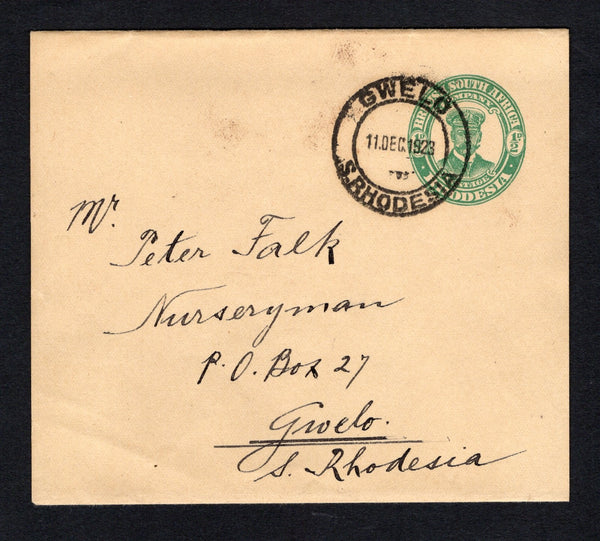 GWELO
11.DEC.1923
S.RHODESIA
SOUTH AFRICA
COMPANY
½D
RHODESIA
Mr.
Peter Falk
Nurseryman
P.O. Box 27
Gwelo.
S. Rhodesia